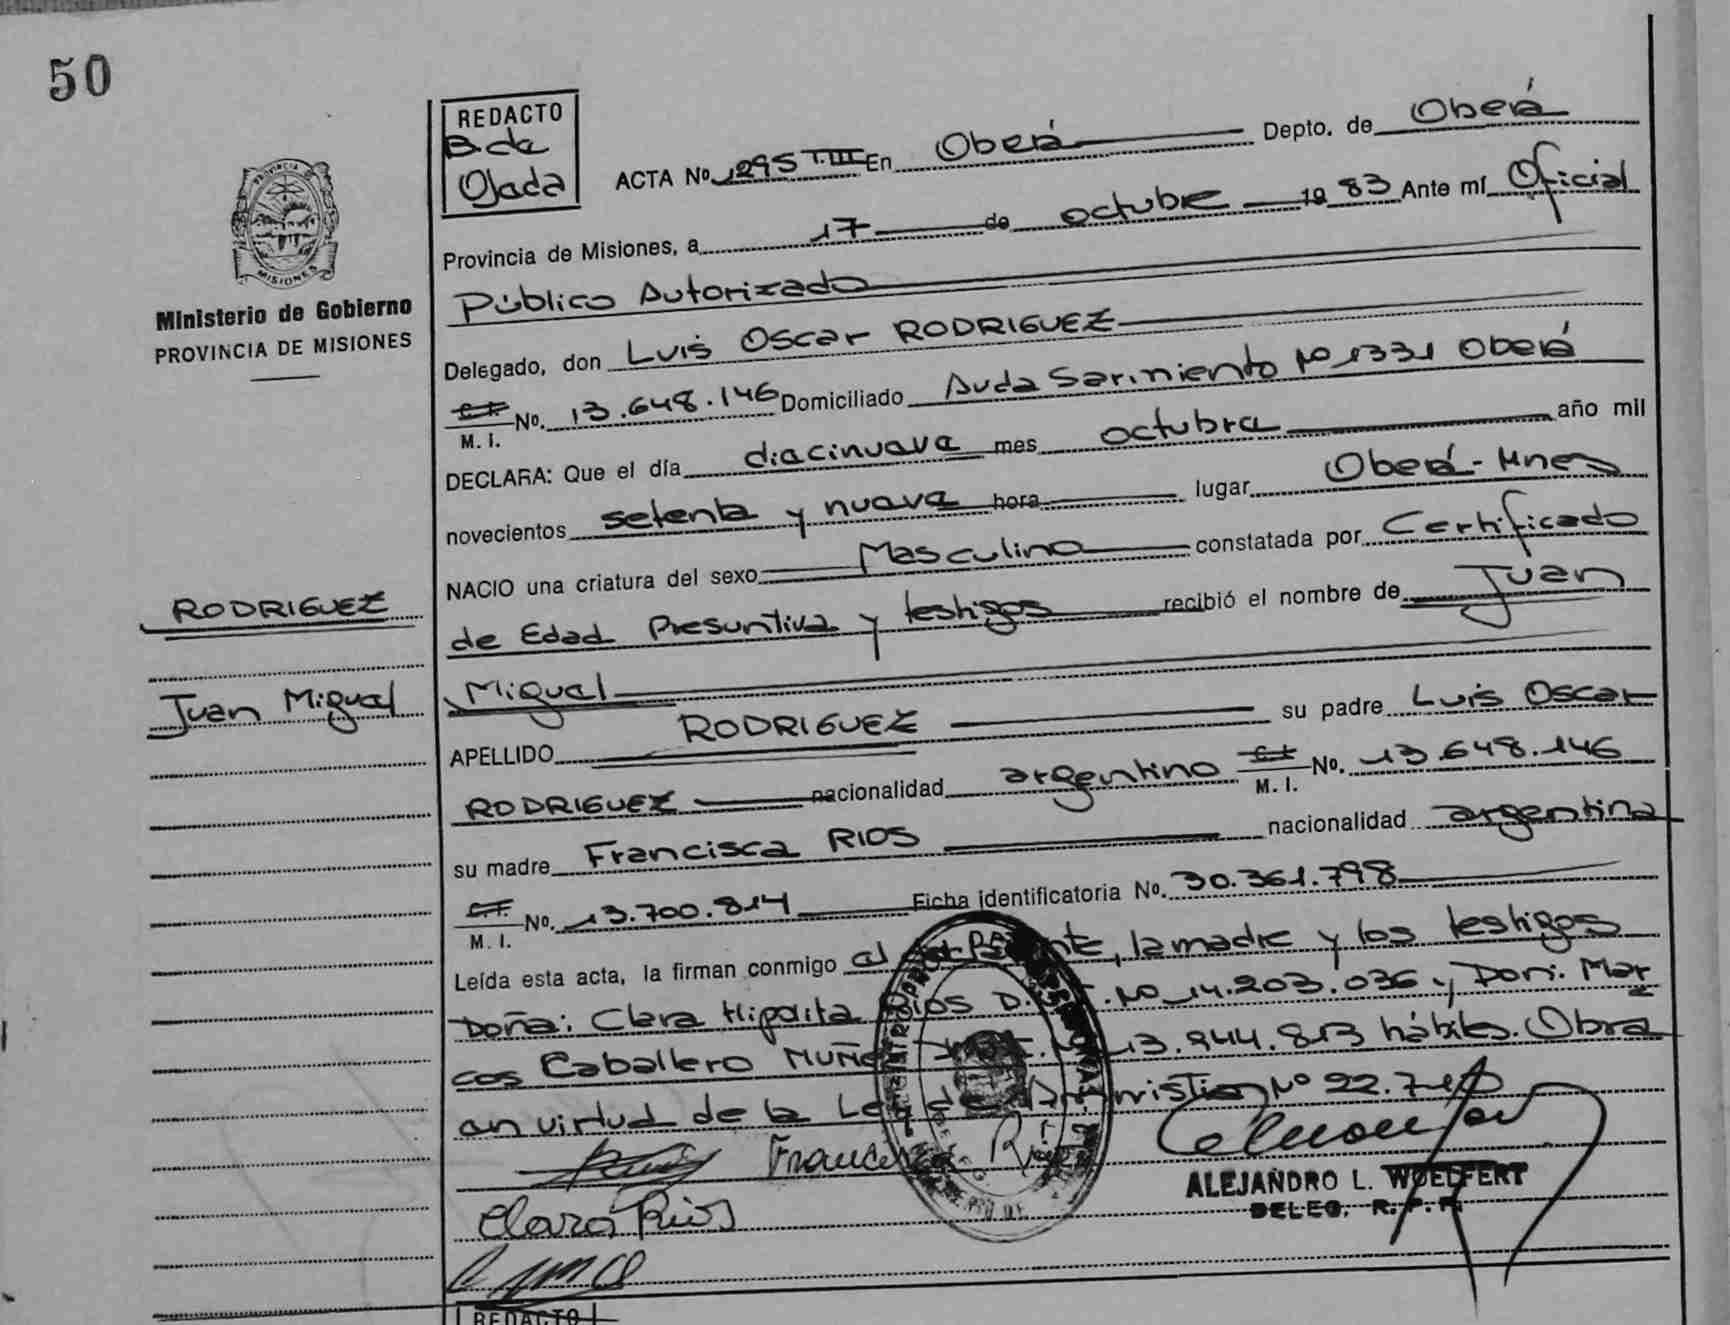 50
REDACTO
B de
Ojada
ACTA No 1295 T.III En Oberá Depto. de Oberá
Provincia de Misiones, a 17 de octubre 19 83 Ante mí Oficial
Público Autorizado
Delegado, don Luis Oscar RODRIGUEZ
No. 13.648.146 Domiciliado Avda Sarmiento No 1331 Oberá
M. I.
DECLARA: Que el día diecinueve mes octubre año mil
novecientos setenta y nueve hora lugar Oberá - Mnes
NACIO una criatura del sexo Masculino constatada por Certificado
de Edad Presuntiva y testigos recibió el nombre de Juan
Miguel
APELLIDO RODRIGUEZ su padre Luis Oscar
RODRIGUEZ nacionalidad argentino M. I. No. 13.648.146
su madre Francisca RIOS nacionalidad argentina
M. I. No. 13.700.814 Ficha identificatoria No. 30.361.798
Leída esta acta, la firman conmigo al la madre y los testigos
Doña: Clara Hipolita RIOS No 14.203.036 y Don: Mar
cos Caballero MUÑ 13.944.813 hábiles. Obra
en virtud de la Ley de Amnistia No 22.
Francisca Rios
Clara Rios
ALEJANDRO L. WOELFERT
DELEG. R. P. P.
REDACTO
PROVINCIA
MISIONES
Ministerio de Gobierno
PROVINCIA DE MISIONES
RODRIGUEZ
Juan Miguel